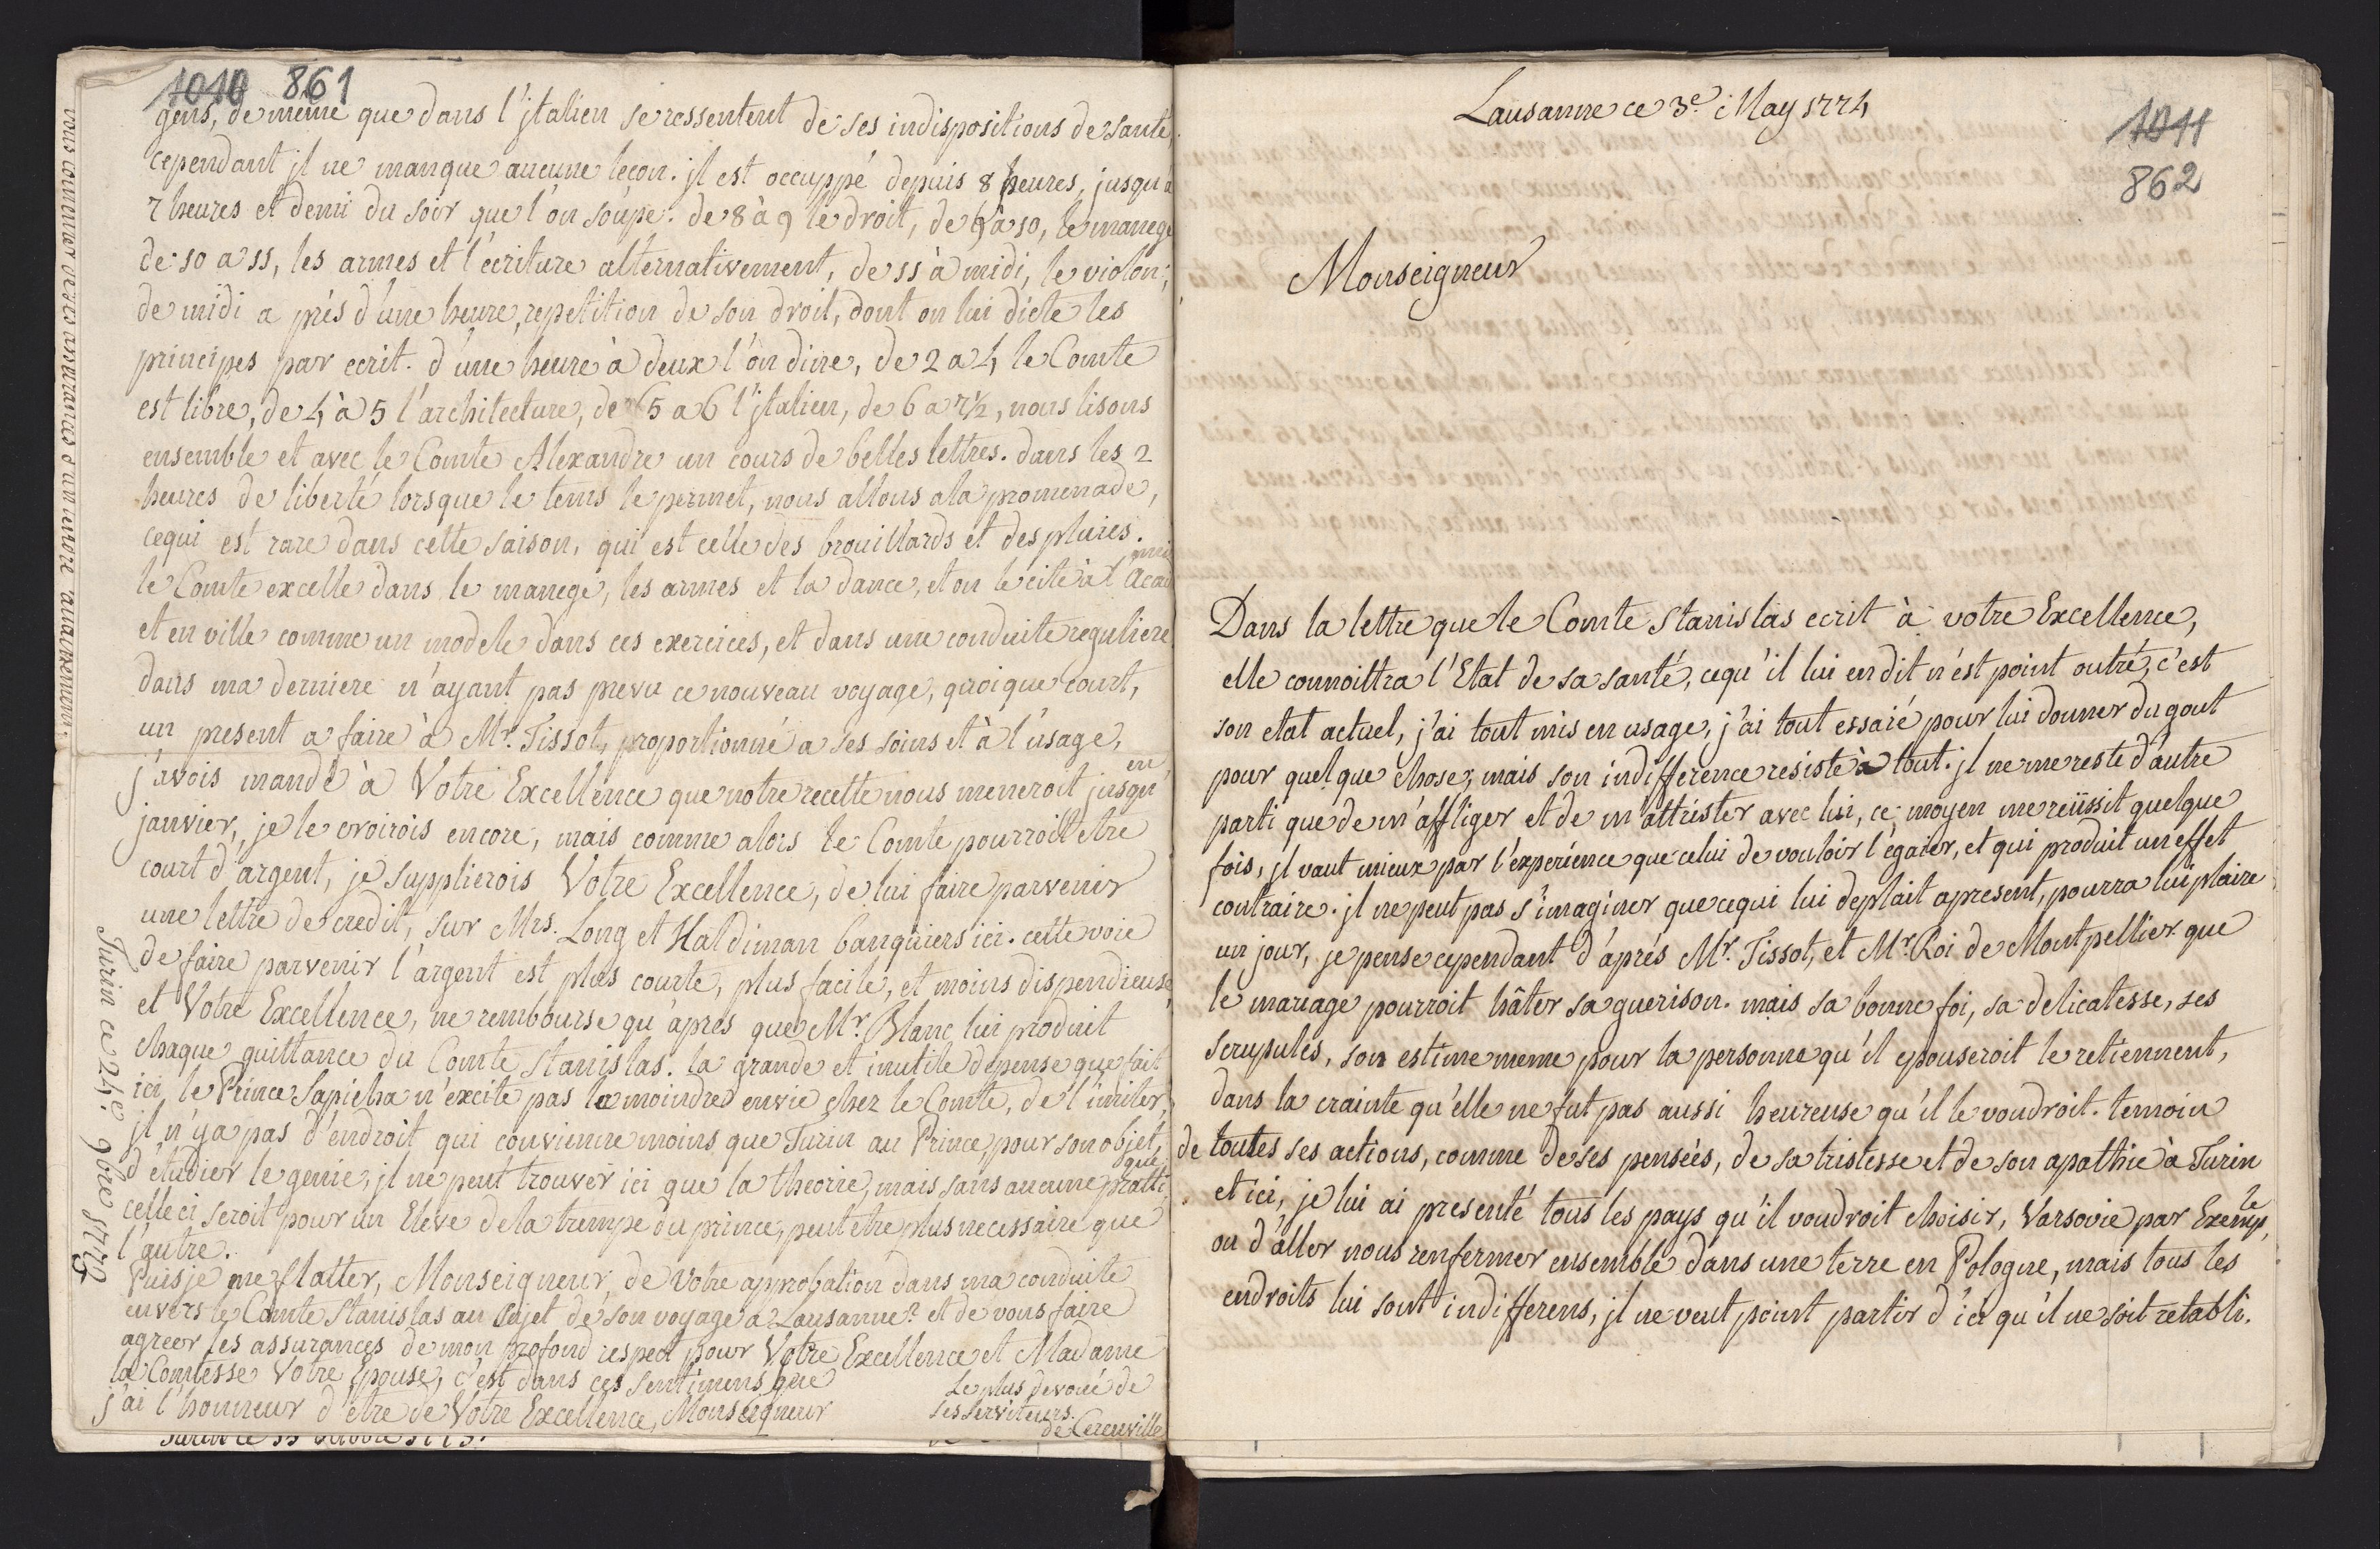 1010 861
gens, de meme que dans l'jtalien se ressentent de ses indispositions de santé,
cependant jl ne manque aucune leçon. jl est occuppé depuis 8 heures, jusqu'a
7 heures et demi du soir que l'on soupe. de 8 à 9 le droit, de 9 à 10, le manege
de 10 a 11, les armes et l'écriture alternativement, de 11 à midi, le violon;
de midi a près d'une heure, repetition de son droit, dont on lui dicte les
principes par ecrit. d'une heure à deux l'on dine, de 2 a 4, le Comte
est libre, de 4 à 5 l'architecture, de 5 a 6 l'jtalien, de 6 a 7½, nous lisons
ensemble et avec le Comte Alexandre un cours de belles lettres. dans les 2
heures de liberté lorsque le tems le permet, nous allons a la promenade,
ce qui est rare dans cette saison, qui est celle des brouillards et des pluies.
le Comte excelle dans le manege, les armes et la dance, et on le cite à l'Acad
et en ville comme un modele dans ces exercices, et dans une conduite reguliere
dans ma derniere n'ayant pas prevu ce nouveau voyage, quoique court,
un present a faire à Mr. Tissot, proportionné a ses soins et à l'usage,
j'avois mandé à Votre Excellence que notre recette nous meneroit jusqu'en
janvier, je le croirois encore, mais comme alors le Comte pourroit etre
court d'argent, je supplierois Votre Excellence, de lui faire parvenir
une lettre de credit, sur Mrs. Long et Haldiman banquiers ici. cette voie
de faire parvenir l'argent est plus courte, plus facile, et moins dispendieuse,
et Votre Excellence, ne rembourse qu'après que Mr. Blanc lui produit
chaque quittance du Comte Stanislas. la grande et inutile depense que fait
ici le Prince Sapieha n'excite pas la moindre envie chez le Comte, de l'imiter,
jl n'y a pas d'endroit qui convienne moins que Turin au Prince, pour son objet,
d'étudier le genie, jl ne peut trouver ici que la theorie, mais sans aucune prattique,
celle ci seroit pour un Eleve de la trempe du prince, peut etre plus necessaire que
l'autre.
Puis je me flatter, Monseigneur, de Votre approbation dans ma conduite
envers le Comte Stanislas au sujet de son voyage a Lausanne? et de vous faire
agreer les assurances de mon profond respect pour Votre Excellence et Madame
la Comtesse Votre Epouse, c'est dans ces sentimens que
j'ai l'honneur d'être de Votre Excellence, Monseigneur
Le plus devoué de
ses serviteurs.
de Cerenville
Turin ce 24e. 9bre 1773
Lausanne ce 3e. May 1774
1011
862
Monseigneur
Dans la lettre que le Comte Stanislas ecrit à votre Excellence,
elle connoittra l'Etat de sa santé, ce qu'il lui en dit n'est point outré, c'est
son etat actuel, j'ai tout mis en usage, j'ai tout essaié pour lui donner du gout
pour quelque chose, mais son indifference resiste à tout. jl ne me reste d'autre
parti que de m'affliger et de m'attrister avec lui, ce moyen me reüssit quelque
fois, jl vaut mieux par l'experience que celui de vouloir l'égaier, et qui produit un effet
contraire. jl ne peut pas s'imaginer que ce qui lui deplait apresent, pourra lui plaire
un jour, je pense cependant d'aprés Mr. Tissot, et Mr. Roi de Montpellier que
le mariage pourroit hâter sa guerison. mais sa bonne foi, sa delicatesse, ses
scrupules, son estime meme pour la personne qu'il epouseroit le retiennent,
dans la crainte qu'elle ne fut pas aussi heureuse qu'il le voudroit. temoin
de toutes ses actions, comme de ses pensées, de sa tristesse et de son apathie à Turin
et ici, je lui ai presenté tous les pays qu'il voudroit choisir, Varsovie par Exemple,
ou d'aller nous renfermer ensemble dans une terre en Pologne, mais tous les
endroits lui sont indifferens, jl ne veut point partir d'ici qu'il ne soit retabli.